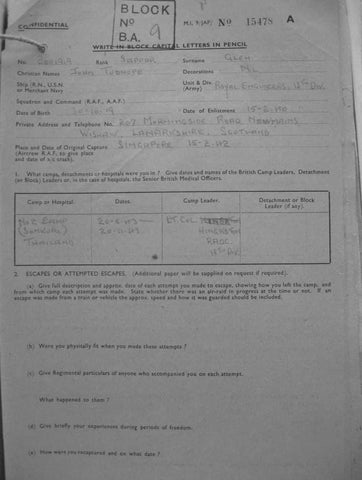 CONFIDENTIAL
BLOCK
Nº
B.A. 9
M.I. 9/JAP/ Nº 15478 A
WRITE IN BLOCK CAPITAL LETTERS IN PENCIL
No. Rank SAPPER Surname GLEN
Christian Names JOHN Decorations NIL
Ship (R.N., U.S.N. or Merchant Navy
Unit & Div. (Army) ROYAL ENGINEERS, Div.
Squadron and Command (R.A.F., A.A.F.)
Date of Birth 19 Date of Enlistment 15-2-40
Private Address and Telephone No. 207 MORNINGSIDE ROAD NEWMAINS
WISHAW LANARKSHIRE SCOTLAND
Place and Date of Original Capture. SINGAPORE 15-2-42
(Aircrew R.A.F. to give place
and date of a/c crash).
1. What camps, detachments or hospitals were you in? Give dates and names of the British Camp Leaders, Detachment
(or Block) Leaders or, in the case of hospitals, the Senior British Medical Officers.
Camp or Hospital. Dates. Camp Leader. Detachment or Block Leader (if any).
No 2 CAMP 20-5-43 LT. COL.
(SONKURAI) 20-11-43
THAILAND RAOC
2. ESCAPES OR ATTEMPTED ESCAPES. (Additional paper will be supplied on request if required).
(a) Give full description and approx. date of each attempt you made to escape, showing how you left the camp, and
from which camp each attempt was made. State whether there was an air-raid in progress at the time or not. If an
escape was made from a train or vehicle the approx. speed and how it was guarded should be included.
(b) Were you physically fit when you made these attempts?
(c) Give Regimental particulars of anyone who accompanied you on each attempt.
What happened to them?
(d) Give briefly your experiences during periods of freedom.
(e) How were you recaptured and on what date?